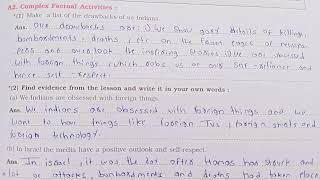 A2. Complex Factual Activities :
*(1) Make a list of the drawbacks of us Indians.
Ans. Our drawbacks are: We show gory details of killings,
bombardments, deaths, etc on the front pages of newspa-
pers and overlook the inspiring stories. We are obsessed
with foreign things which robs us of our self-reliance and
hence self-respect.
*(2) Find evidence from the lesson and write it in your own words :
(a) We Indians are obsessed with foreign things.
Ans. We Indians are obsessed with foreign things and we
want to have things like foreign T.Vs, foreign shirts and
foreign technology.
(b) In Israel the media have a positive outlook and self-respect.
Ans. In Israel, it was the day after Hamas has struck and
a lot of attacks, bombardments and deaths had taken place